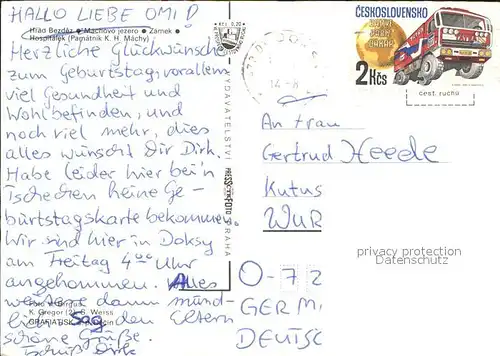 HALLO LIEBE OMI !
Hrad Bezděz • Máchovo jezero • Zámek •
Hospitálek (Památník K. H. Máchy)
Herzliche Glückwünsche
zum Geburtstag, vorallem
viel Gesundheit und
Wohlbefinden, und
noch viel mehr, dies
alles wünscht Dir Dirk.
Habe leider hier bei'n
Tschechen keine Ge-
burtstagskarte bekommen.
Wir sind hier in Doksy
am Freitag 4 00 Uhr
angekommen. Alles
weitere dann münd-
K. Gregor (2), S. Weiss
lich. Sag den Eltern
GRAFIATISK
schöne Grüße.
Tschüß Dirk
Kčs 0,20
VYDAVATELSTVÍ
PRESSFOTO
PRAHA
ČESKOSLOVENSKO
PARIS
DAKAR
2 Kčs
čest. ruchu
An Frau
Gertrud Heede
Kutus
WUR
privacy protection
Datenschutz
O-72
GERM
DEUTSC